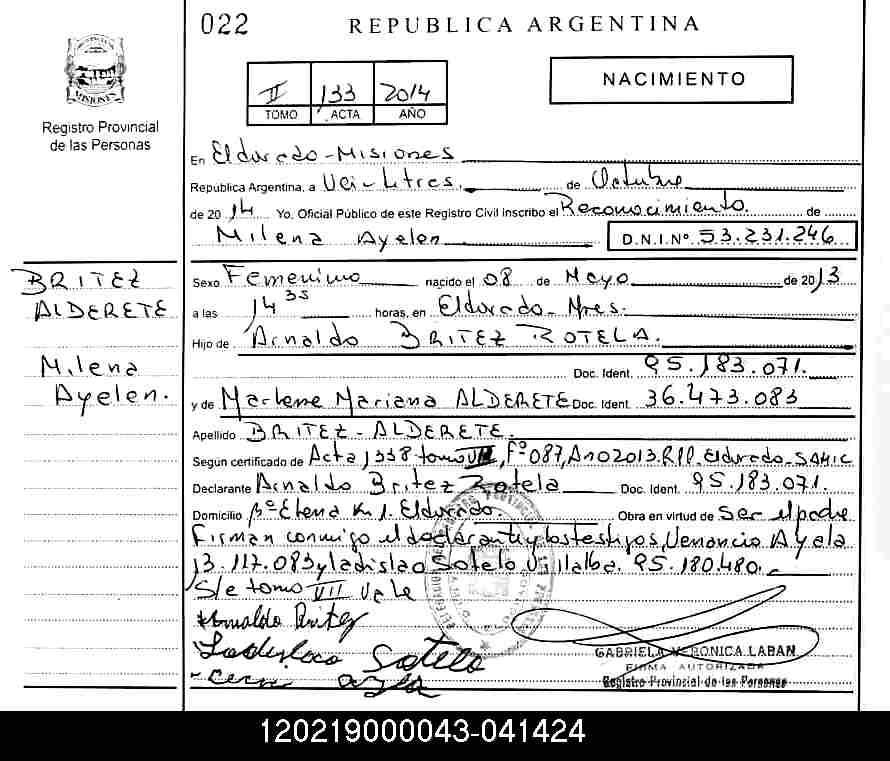 022
REPUBLICA ARGENTINA
NACIMIENTO
II 133 2014
TOMO ACTA AÑO
MISIONES
Registro Provincial
de las Personas
En Eldorado - Misiones
Republica Argentina, a Veintitres. de Octubre
de 2014 Yo. Oficial Público de este Registro Civil Inscribo el Reconocimiento. de
Milena Ayelen D.N.I.Nº 53.231.246
BRITEZ
ALDERETE
Milena
Ayelen.
Sexo Femenino nacido el 08 de Mayo de 2013
a las 14 35 horas, en Eldorado - Mnes.
Hijo de Arnaldo BRITEZ ROTELA.
Doc. Ident. 95.183.071.
y de Marlene Mariana ALDERETE Doc. Ident. 36.473.083
Apellido BRITEZ - ALDERETE.
Según certificado de Acta 1338 tomo VII, Fº 087, Año 2013. R.P.P. Eldorado - SAMIC
Declarante Arnaldo Britez Rotela Doc. Ident. 95.183.071.
Domicilio Bº Elena Km 1. Eldorado. Obra en virtud de Ser el padre
Firman conmigo el declarante y los testigos, Venancio Ayala
13.117.083 y ladislao Sotelo Villalba. 95.180.480.
S/e tomo VII Vale
Arnaldo Britez
Ladislao Sotelo
GABRIELA VERONICA LABAN
FIRMA AUTORIZADA
Registro Provincial de las Personas
120219000043-041424